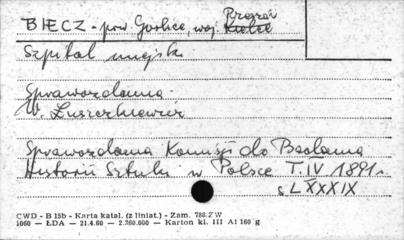 Rzeszów
BIECZ - pow Gorlice, woj. Kielce
Szpital miejski
Sprawozdania
W. Łuszczkiewicz
Sprawozdania Komisji do Badania
Historii Sztuki w Polsce T. IV 1891 r.
s. LXXXIX
CWD - B 15b - Karta katal. (z liniat.) - Zam. 788.ZW
1060 — ŁDA — 21.4.60 — 2.360.000 — Karton kl. III A1 160 g